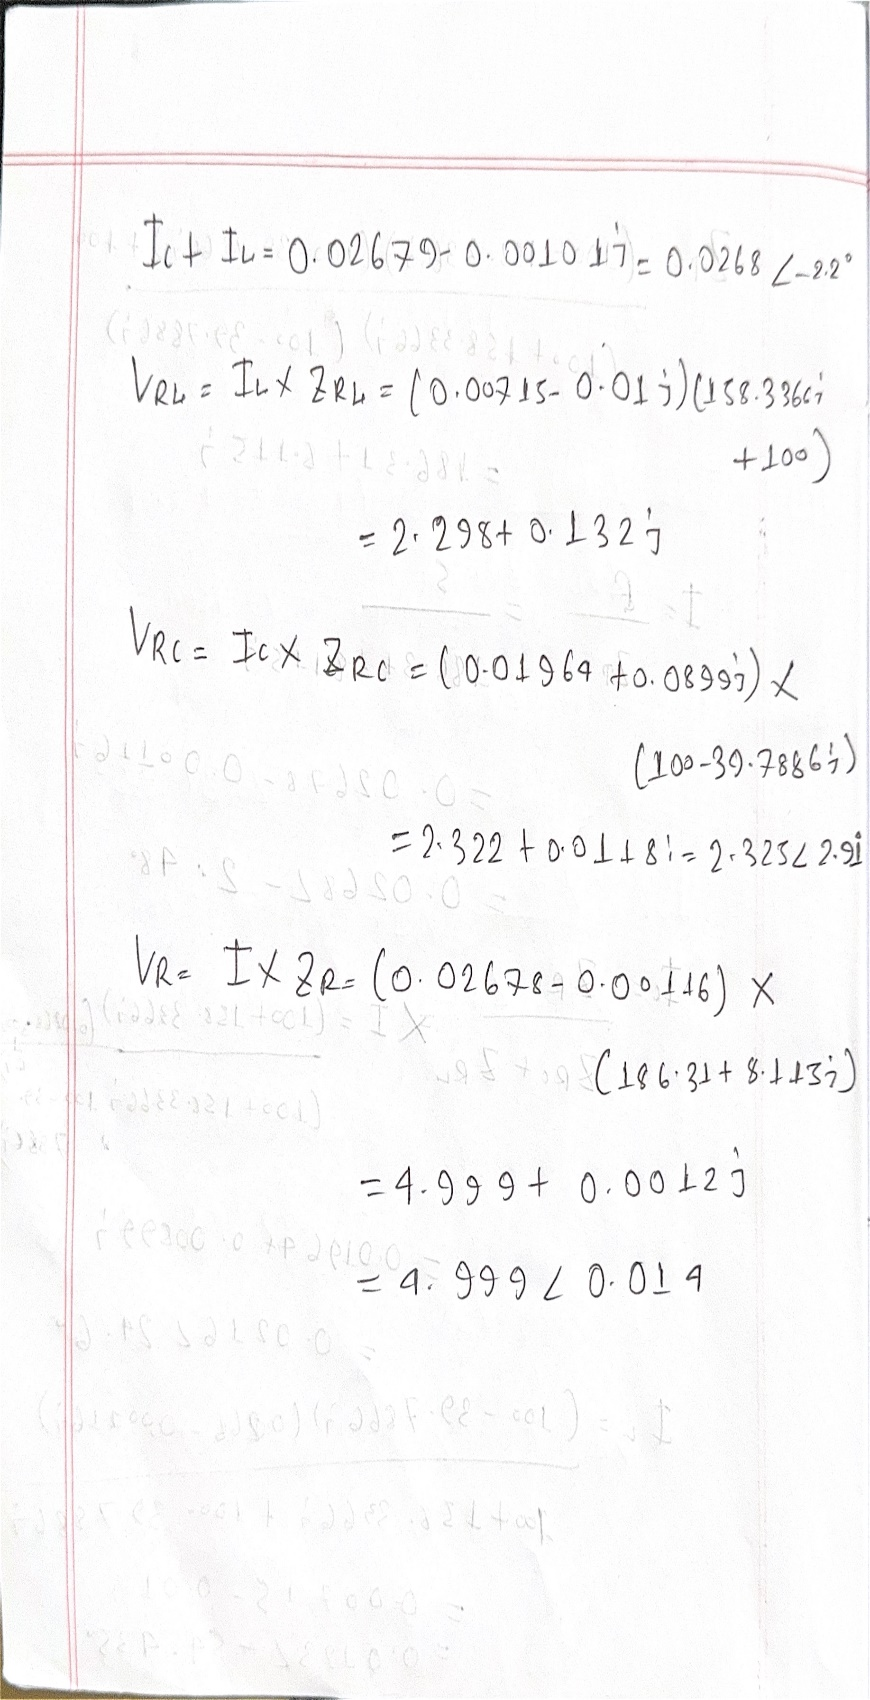 Ic + IL = 0.02679 - 0.00101j = 0.0268 ∠-2.2°
VRL = IL X ZRL = (0.00715 - 0.01j)(158.3366j
+100)
= 2.298 + 0.132j
VRC = Ic X ZRC = (0.01964 + 0.0899j) X
(100-39.7886j)
= 2.322 + 0.0118i = 2.325∠2.91
VR = I X ZR = (0.02678 - 0.00116) X
(186.31 + 8.113j)
= 4.999 + 0.0012j
= 4.999 ∠ 0.014